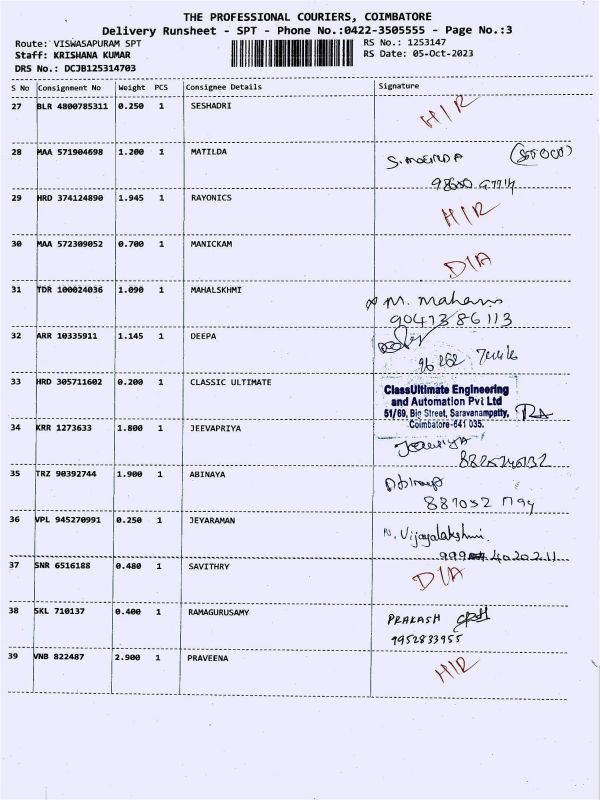 THE PROFESSIONAL COURIERS, COIMBATORE
Delivery Runsheet - SPT - Phone No.:0422-3505555 - Page No.:3
Route: VISWASAPURAM SPT RS No.: 1253147
Staff: KRISHANA KUMAR RS Date: 05-Oct-2023
DRS No.: DCJB125314703
S No Consignment No Weight PCS Consignee Details Signature
27 BLR 4800785311 0.250 1 SESHADRI H/R
28 MAA 571904698 1.200 1 MATILDA
29 HRD 374124890 1.945 1 RAYONICS H/R
30 MAA 572309052 0.700 1 MANICKAM D/A
31 TDR 100024036 1.090 1 MAHALSKHMI M.
9047386113
32 ARR 10335911 1.145 1 DEEPA
33 HRD 305711602 0.200 1 CLASSIC ULTIMATE
ClassUltimate Engineering
and Automation Pvt Ltd
51/69, Big Street, Saravanampatty,
Coimbatore-641 035.
34 KRR 1273633 1.800 1 JEEVAPRIYA
35 TRZ 90392744 1.900 1 ABINAYA
36 VPL 945270991 0.250 1 JEYARAMAN Vijayalakshmi.
37 SNR 6516188 0.480 1 SAVITHRY D/A
38 SKL 710137 0.400 1 RAMAGURUSAMY PRAKASH
9952833955
39 VNB 822487 2.900 1 PRAVEENA H/R